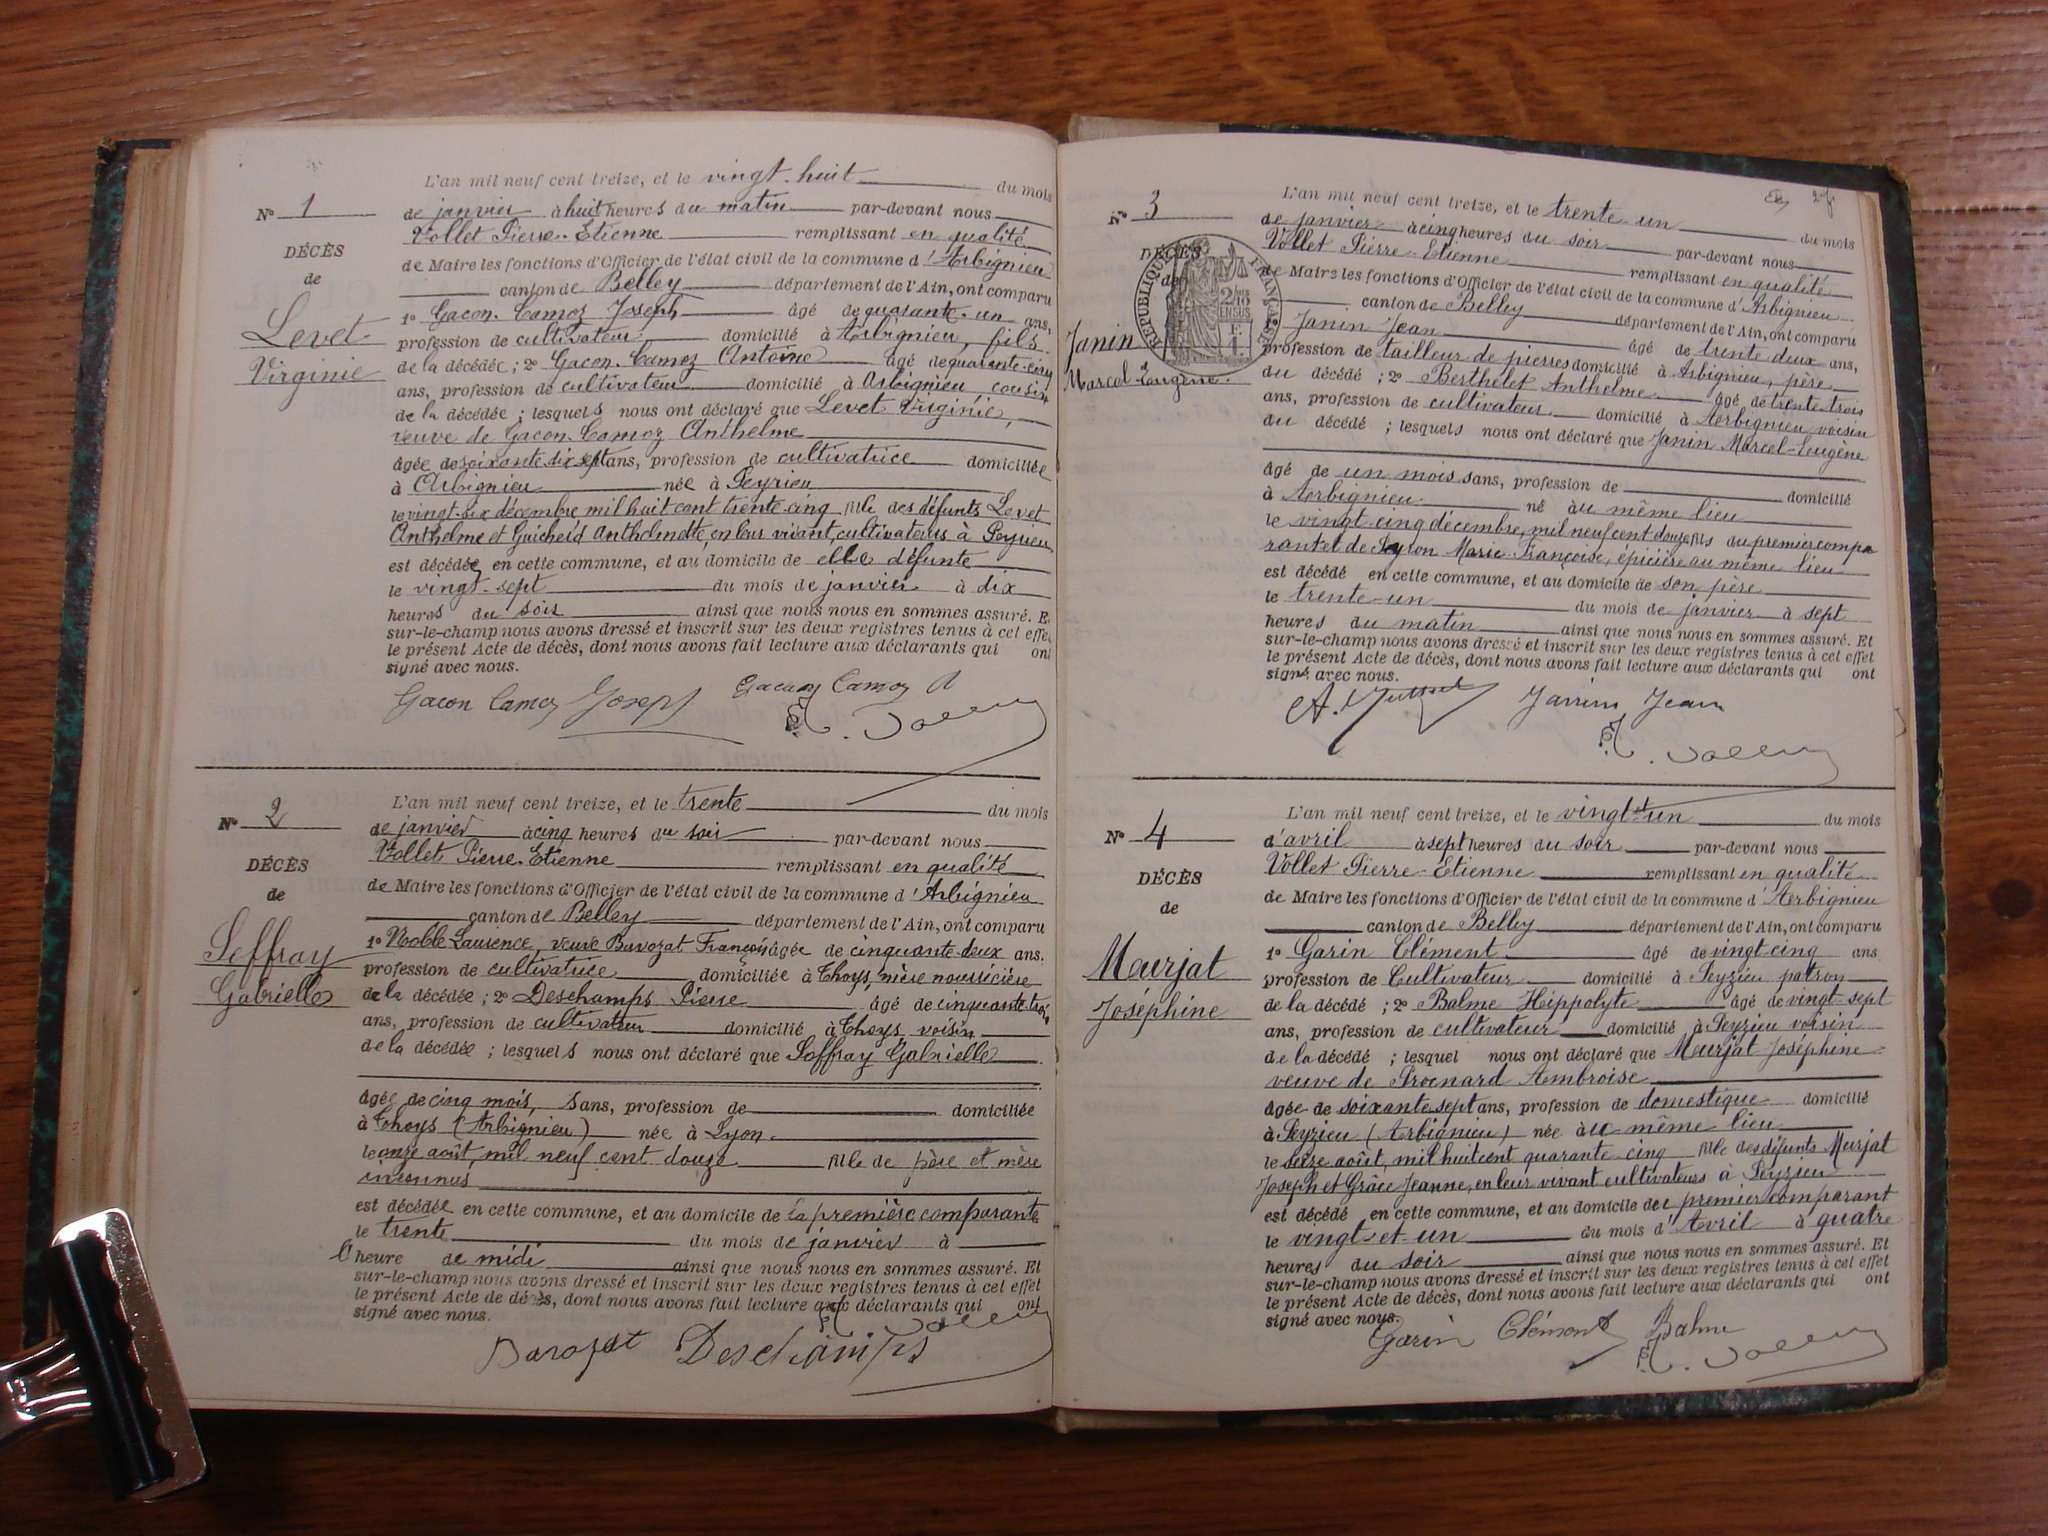 L'an mil neuf cent treize, et le vingt-huit du mois
N° 1
de janvier à huit heures du matin par-devant nous
Vollet Pierre-Etienne remplissant en qualité
DÉCÈS
de Maire les fonctions d'Officier de l'état civil de la commune d'Arbignieu
de
canton de Belley département de l'Ain, ont comparu
1° Gacon-Camoz Joseph âgé de quarante-un ans,
Levet
profession de cultivateur domicilié à Arbignieu, fils
Virginie
de la décédée ; 2° Gacon-Camoz Antoine âgé de quarante-cinq
ans, profession de cultivateur domicilié à Arbignieu, cousin
de la décédée ; lesquels nous ont déclaré que Levet Virginie,
veuve de Gacon-Camoz Anthelme
âgée de soixante dix sept ans, profession de cultivatrice domiciliée
à Arbignieu née à Peyrieu
le vingt-six décembre mil huit cent trente-cinq fille des défunts Levet
Anthelme et Anthelmette, en leur vivant, cultivateurs à Peyrieu
est décédée en cette commune, et au domicile de elle défunte
le vingt-sept du mois de janvier à dix
heures du soir ainsi que nous nous en sommes assuré. Et
sur-le-champ nous avons dressé et inscrit sur les deux registres tenus à cet effet
le présent Acte de décès, dont nous avons fait lecture aux déclarants qui ont
signé avec nous.
Gacon Camoz Joseph Gacon Camoz A
L'an mil neuf cent treize, et le trente du mois
N° 2
de janvier à cinq heures du soir par-devant nous
Vollet Pierre-Etienne remplissant en qualité
DÉCÈS
de Maire les fonctions d'Officier de l'état civil de la commune d'Arbignieu
de
canton de Belley département de l'Ain, ont comparu
1° Noble Laurence, veuve Bavozat François âgée de cinquante-deux ans.
Seffray
profession de cultivatrice domiciliée à Thoys, mère nourricière
Gabrielle
de la décédée ; 2° Deschamps Pierre âgé de cinquante trois
ans, profession de cultivateur domicilié à Thoys, voisin
de la décédée ; lesquels nous ont déclaré que Seffray Gabrielle
âgée de cinq mois, sans, profession de domiciliée
à Thoys (Arbignieu) née à Lyon.
le onze août, mil neuf cent douze fille de père et mère
inconnus
est décédée en cette commune, et au domicile de la première comparante
le trente du mois de janvier à
heure de midi ainsi que nous nous en sommes assuré. Et
sur-le-champ nous avons dressé et inscrit sur les deux registres tenus à cet effet
le présent Acte de décès, dont nous avons fait lecture aux déclarants qui ont
signé avec nous.
Bavozat Deschamps
L'an mil neuf cent treize, et le trente-un du mois
N° 3
de janvier à cinq heures du soir par-devant nous
Vollet Pierre-Etienne remplissant en qualité
DÉCÈS
de
RÉPUBLIQUE FRANÇAISE
de Maire les fonctions d'Officier de l'état civil de la commune d'Arbignieu
canton de Belley département de l'Ain, ont comparu
Janin Jean âgé de trente deux ans,
Janin
profession de tailleur de pierres domicilié à Arbignieu, père
Marcel-Eugène.
du décédé ; 2° Berthelet Anthelme âgé de trente-trois
ans, profession de cultivateur domicilié à Arbignieu voisin
du décédé ; lesquels nous ont déclaré que Janin Marcel-Eugène
âgé de un mois sans, profession de domicilié
à Arbignieu né au même lieu
le vingt-cinq décembre, mil neuf cent douze fils du premier compa
rant et de Marie-Françoise, épicière au même lieu
est décédé en cette commune, et au domicile de son père
le trente-un du mois de janvier à sept
heures du matin ainsi que nous nous en sommes assuré. Et
sur-le-champ nous avons dressé et inscrit sur les deux registres tenus à cet effet
le présent Acte de décès, dont nous avons fait lecture aux déclarants qui ont
signé avec nous.
Janin Jean
L'an mil neuf cent treize, et le vingt et un du mois
N° 4
d'avril à sept heures du soir par-devant nous
Vollet Pierre-Etienne remplissant en qualité
DÉCÈS
de Maire les fonctions d'Officier de l'état civil de la commune d'Arbignieu
de
canton de Belley département de l'Ain, ont comparu
1° Garin Clément âgé de vingt-cinq ans
Meurjat
profession de Cultivateur domicilié à Peyzieu patron
Joséphine
de la décédé ; 2° Balme Hippolyte âgé de vingt-sept
ans, profession de cultivateur domicilié à Peyzieu voisin
de la décédé ; lesquel nous ont déclaré que Meurjat Joséphine
veuve de Ambroise
âgée de soixante sept ans, profession de domestique domicilié
à Peyzieu (Arbignieu) née au même lieu
le seize août, mil huit cent quarante cinq fille des défunts Murjat
Joseph et Grâce Jeanne, en leur vivant cultivateurs à Peyzieu
est décédé en cette commune, et au domicile du premier comparant
le vingt-et-un du mois d'Avril à quatre
heures du soir ainsi que nous nous en sommes assuré. Et
sur-le-champ nous avons dressé et inscrit sur les deux registres tenus à cet effet
le présent Acte de décès, dont nous avons fait lecture aux déclarants qui ont
signé avec nous.
Garin Clément Balme